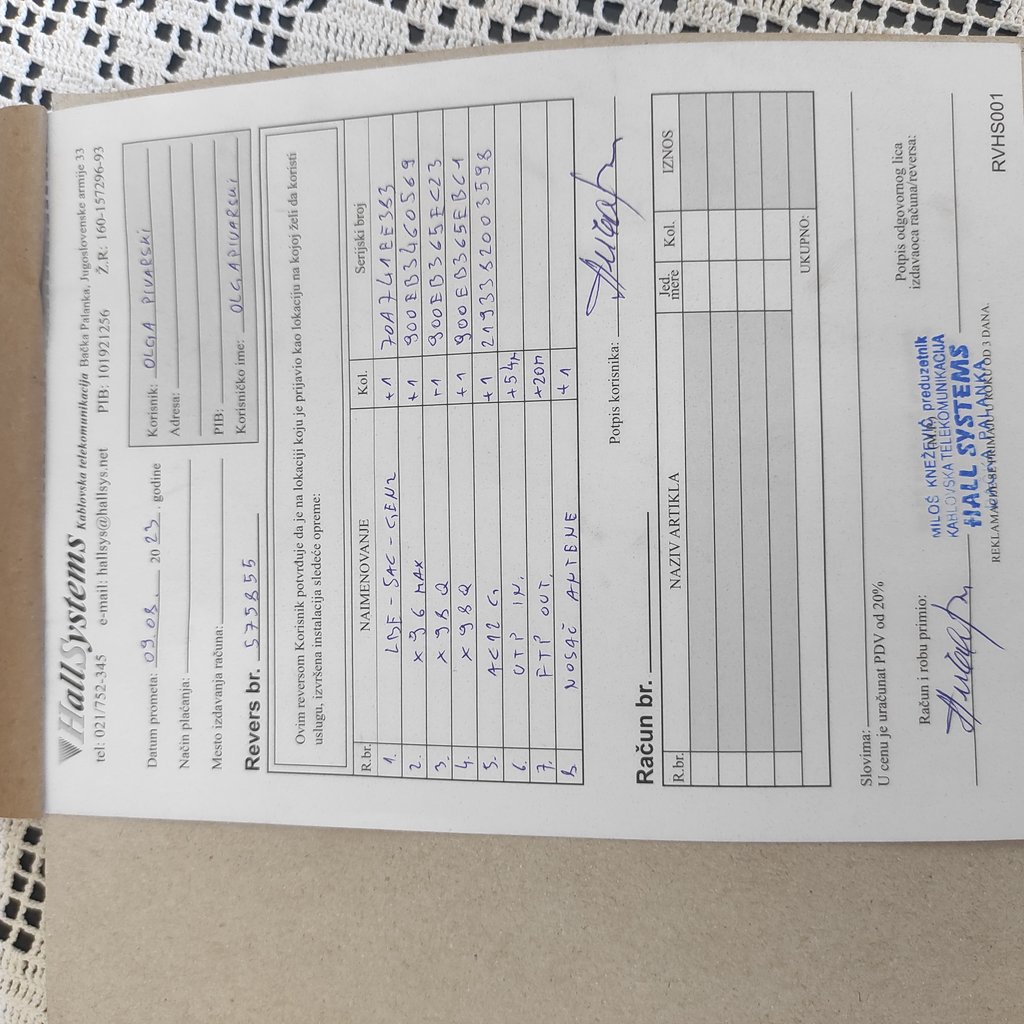 HallSystems Kablovska telekomunikacija Bačka Palanka, Jugoslovenske armije 33
tel: 021/752-345 e-mail: hallsys@hallsys.net PIB: 101921256 Ž.R: 160-157296-93
Datum prometa: 09.08. 2023. godine
Način plaćanja:
Mesto izdavanja računa:
Korisnik: OLGA PIVARSKI
Adresa:
PIB:
Korisničko ime: OLGAPIVARSKI
Revers br. 575855
Ovim reversom Korisnik potvrđuje da je na lokaciji koju je prijavio kao lokaciju na kojoj želi da koristi
uslugu, izvršena instalacija sledeće opreme:
R.br. NAIMENOVANJE Kol. Serijski broj
1. LBE-5AC-GEN2 +1 70A741BE363
2. X96 MAX +1 900EB3460569
3. X98Q +1 900EB365EC23
4. X98Q +1 900EB365EBC1
5. AC12G +1 2193362003598
6. UTP IN. +54m
7. FTP OUT. +20m
8 NOSAČ ANTENE +1
Potpis korisnika:
Račun br.
R.br. NAZIV ARTIKLA Jed. mere Kol. IZNOS
UKUPNO:
Slovima:
U cenu je uračunat PDV od 20%
Račun i robu primio:
Potpis odgovornog lica
izdavaoca računa/reversa:
MILOŠ KNEŽEVIĆ preduzetnik
KABLOVSKA TELEKOMUNIKACIJA
HALL SYSTEMS
BAČKA PALANKA
REKLAMACIJE SE PRIMAJU U ROKU OD 3 DANA.
RVHS001